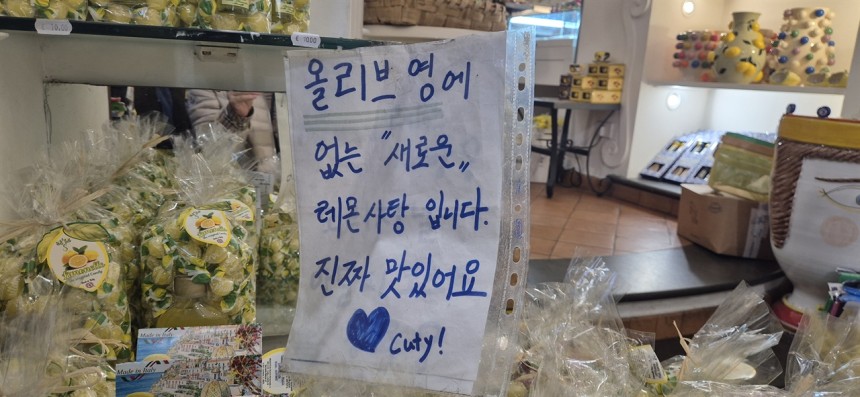 올리브영에
없는 "새로운"
레몬사탕 입니다.
진짜 맛있어요
Cuty!
Made in Italy
Made in Italy